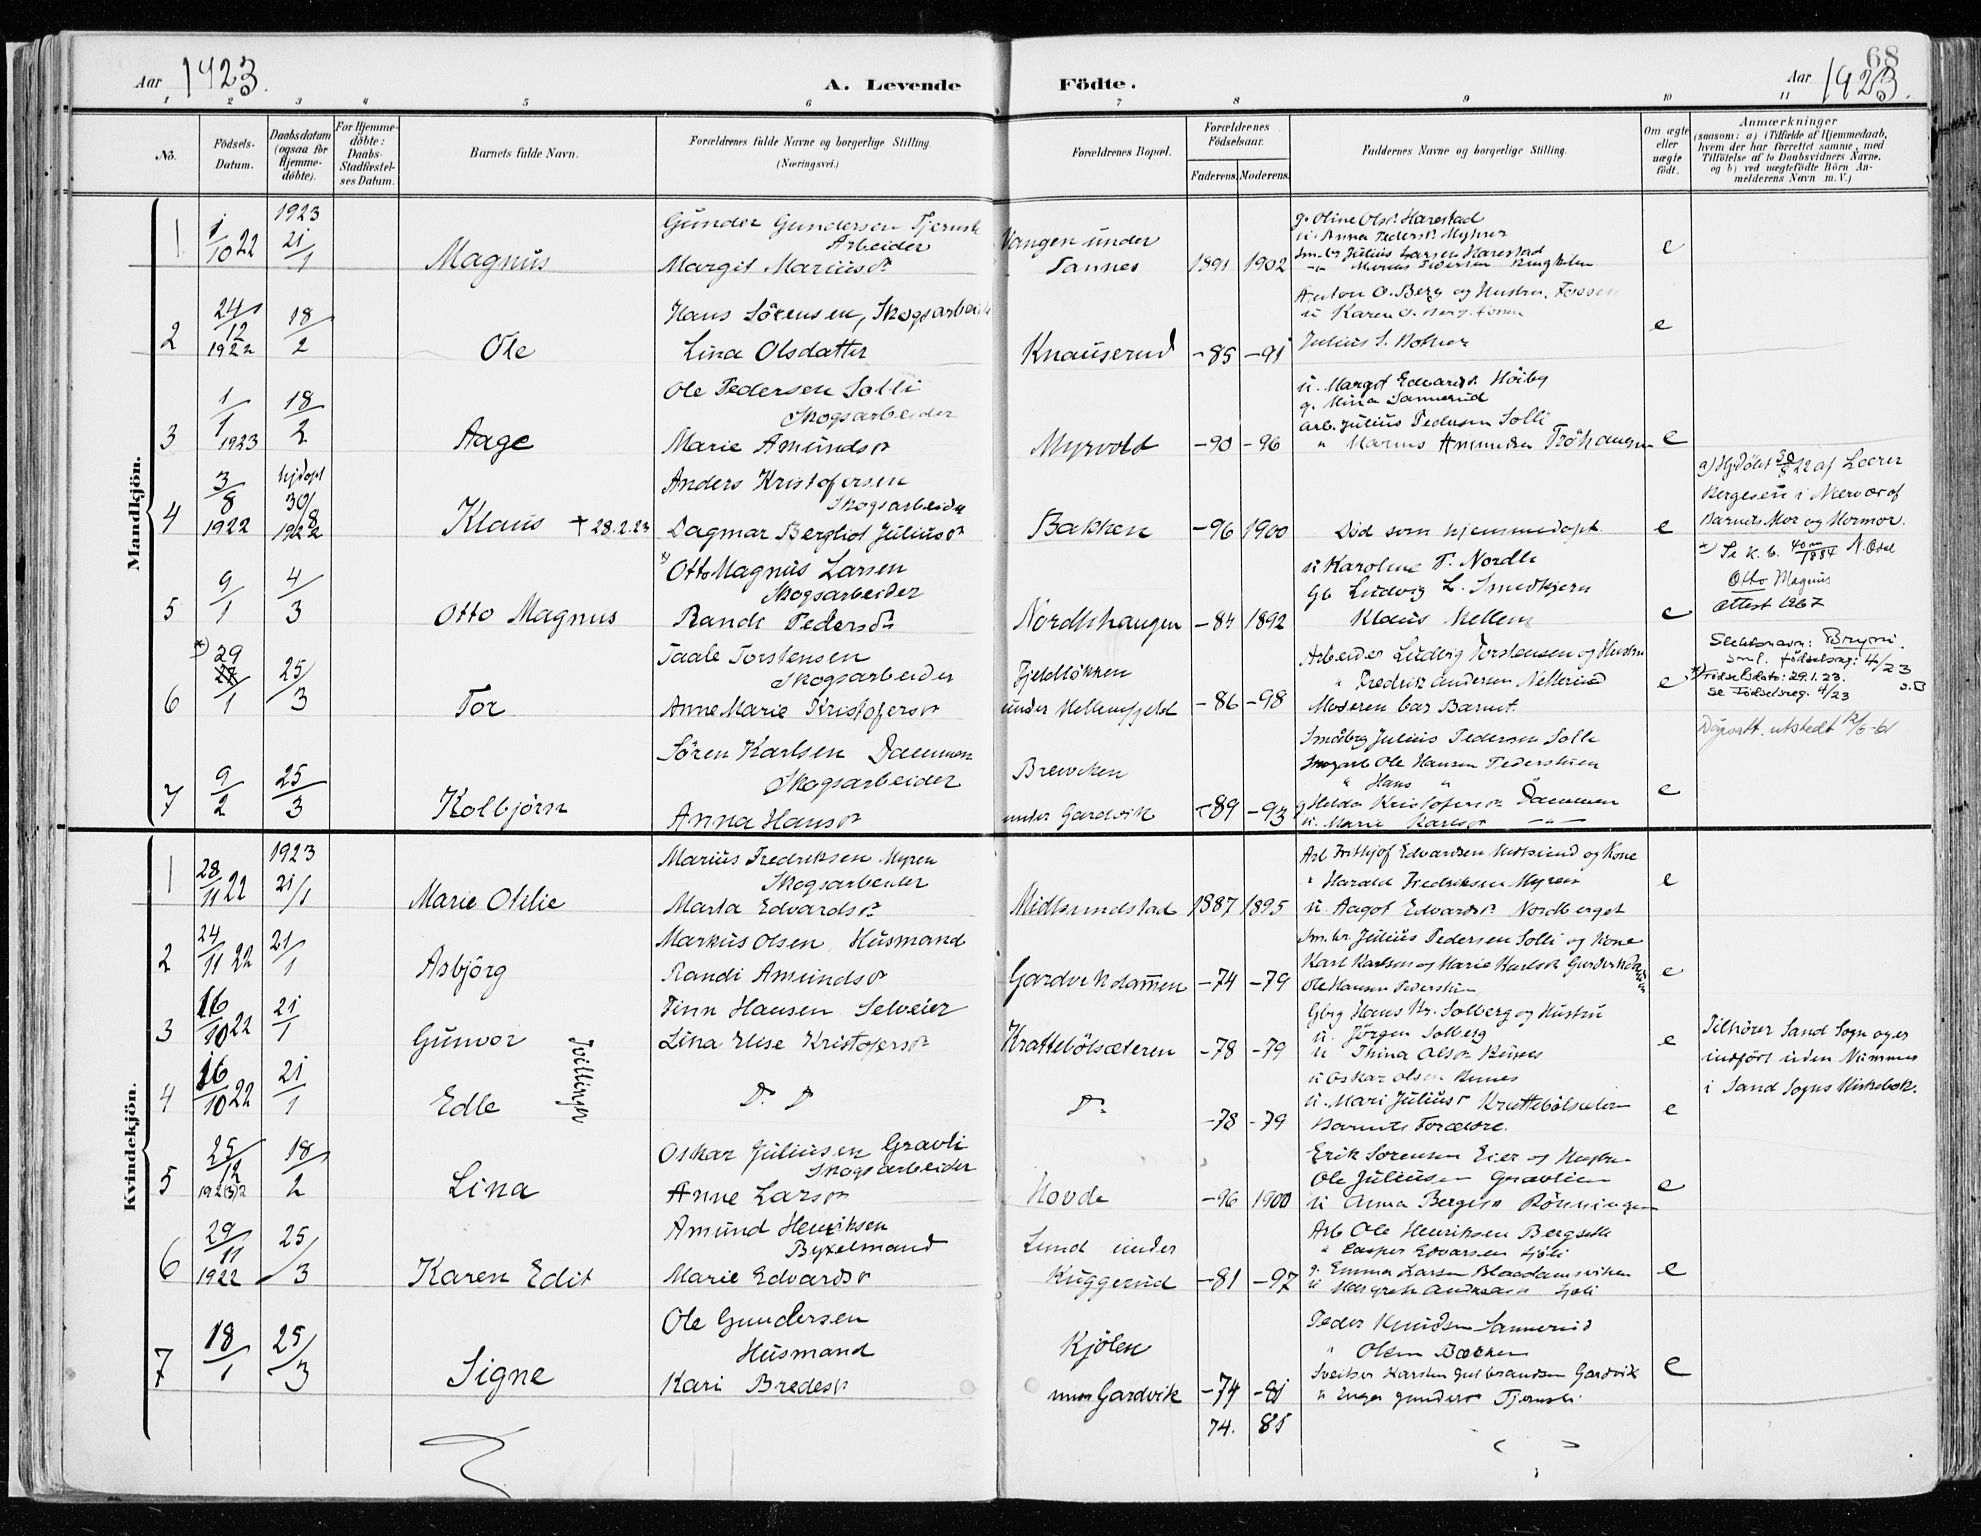 68
Aar 1923.
A. Levende Födte.
Aar 1923.
1 2 3 4 5 6 7 8 9 10 11
No.
Födsels-Datum.
Daabsdatum (ogsaa for Hjemme-döbte).
For Hjemme-döbte: Daabs-Stadfæstel-ses Datum.
Barnets fulde Navn.
Forældrenes fulde Navne og borgerlige Stilling. (Næringsvei.)
Forældrenes Bopæl.
Forældrenes Födselsaar.
Faderens. Moderens.
Faddernes Navne og borgerlige Stilling.
Om ægte eller uægte födt.
Anmærkninger
(saasom: a) i Tilfælde af Hjemmedaab,
hvem der har forrettet samme, med
Tilföielse af to Daabsvidners Navne,
og b) ved uægtefödte Börn An-
melderens Navn m. V.)
Mandkjön.
1 1/10 22 1923 21/1 Magnus
Gunder Gundersen
Arbeider
Margit Mariusdr
Vangen under
Sannes 1891 1902
g. Oline Olsd. Harestad
u. Anna Pedersdr Myhrer
Sm.br Julius Larsen Harestad
Marius Pedersen
e
2 24/12 1922 18/2 Ole
Hans Sörensen, Skogsarbeider
Lina Olsdatter
Knauserud -85 -91
Anton O. Berg og Hustru, Fossen
u Karen O. Berg Fossen
Julius S.
e
3 1/1 1923 18/2 Aage
Ole Pedersen Solli
Skogsarbeider
Marie Amundsdr
Myrvold -90 -96
u. Margot Edvardsdr Höiby
g. Mina Sannerud
Arb. Julius Pedersen Solli
" Marius Amundsen
e
4 3/8 1922 hjdöpt 30/8 1922 Klaus + 28.2.23
Anders Kristofersen
Skogsarbeider
Dagmar Bergliot Juliusdr
Bakken -96 1900
Död som hjemmedöpt
e
a) Hjdöbt 30/8 22 af Lærer
Bergesen i Nærvær af
Barnets Mor og Mormor.
5 9/1 4/3 Otto Magnus
x) Otto Magnus Larsen
Skogsarbeider
Randi Pedersdr
Nordlihaugen -84 1892
u Karoline P. Nordli
Gb Ludvig L. Smedhjern
Klaus Mellem
e
x) Se k. b. 40 m/1884 N. Osen
Otto Magnus
Attest 1967
6 x) 29/1 25/3 Tor
Paale Torstensen
Skogsarbeider
Anne Marie Kristofersdr
Fjeldlökken
under Mellemfjeld -86 -98
Arbeider Ludvig Torstensen og Hustru
" Fredrik Andersen Nellerud
Moderen bar Barnet.
e
Slektsnavn: Bryni.
sml. födselsreg: 4/23
x) Födselsdato: 29.1.23.
se Födselsreg. 4/23
Dåpsatt. utstedt 12/6-61
7 9/2 25/3 Kolbjörn
Sören Karlsen Dammen
Skogsarbeider
Anna Hansdr
Brenviken
under Gardvik -89 -93
Småbrg Julius Pedersen Solli
Skogarb Ole Hansen Pederstuen
" Hans "
g Helda Kristofersdr Dammen
u. Marie Karlsdr
e
Kvindekjön.
1 28/11 22 1923 21/1 Marie Otilie
Marius Fredriksen Myren
Skogsarbeider
Marta Edvardsdr
Midtsundstad 1887 1895
Arb Frithjof Edvardsen Midtsund og Kone
" Harald Fredriksen Myren
u. Aagot Edvardsdr Nordberget
e
2 24/11 22 21/1 Asbjörg
Markus Olsen Husmand
Randi Amundsdr
Gardvikdammen -74 -79
Sm.br Julius Pedersen Solli og Kone
Karl Karlsen og Marie Karlsdr
Ole Hansen Pederstuen
e
3 16/10 22 21/1 Gunvor
Finn Hansen Selveier
Lina Elise Kristofersdr
Krattebölsæteren -78 -79
Gbrg Hans Kr. Solberg og Hustru
u. Jörgen Solberg
u Thina Olsdr
e
Tilhörer Sand Sogn og er
indfört uden Nummer
i Sand Sogns Kirkebok.
Tvillinger
4 16/10 22 21/1 Edle
Do Do
Do
-78 -79
u Oskar Olsen
u. Mari Juliusdr Krattebölsæteren
Barnets Forældre.
e
5 25/12 1922 18/2 Lina
Oskar Juliusen Gravli
Skogsarbeider
Anne Larsdr
Hovde -96 1900
Erik Sorensen Eier og Hustru
Ole Juliusen Gravlien
u Anna Bergesdr Rönningen
e
6 29/11 1922 25/3 Karen Edit
Amund Henriksen
Byxelmand
Marie Edvardsdr
Lund under
Kuggerud -81 -97
Arb Ole Henriksen Bergseth
" Casper Edvarsen Sjöli
g. Emma Larsen Bladdamsviken
u Margrete Andreasdr Sjöli
e
7 18/1 25/3 Signe
Ole Gundersen
Husmand
Kari Bredesdr
Kjölen
under Gardvik -74 -81
74. 85
Peder Knudsen Sannerud
" Olsen Bakken
Sveitser Karsten Gulbrandsen Gardvik
u Inga Gundersdr Tjernsli
e